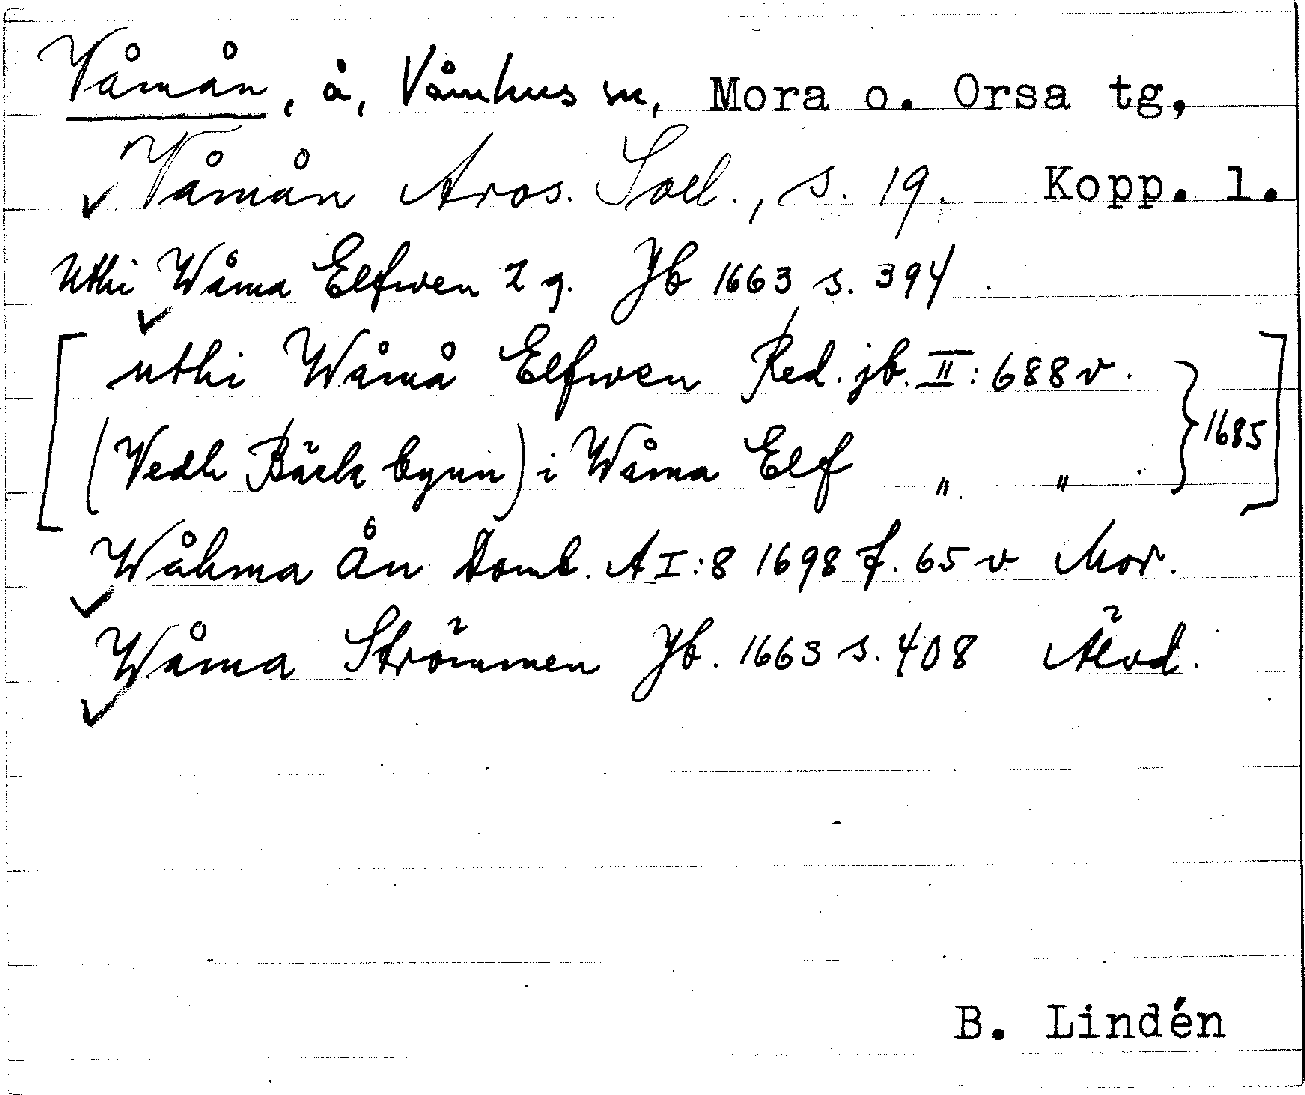 Våmån, å, Våmhus sn, Mora o. Orsa tg,
Våmån Aros. Soel., s. 19. Kopp. l.
Uthi Wåma Elfwen 2 g. Jb 1663 s. 394
[ uthi Wåmå Elfwen Red. jb. II: 688 v. } 1685 ]
(Vedh Bäck bynn) i Wåma Elf " "
Wåhma Ån Domb. A I:8 1698 f. 65 v Mor.
Wåma Strömmen Jb. 1663 s. 408 Älvd.
B. Lindén